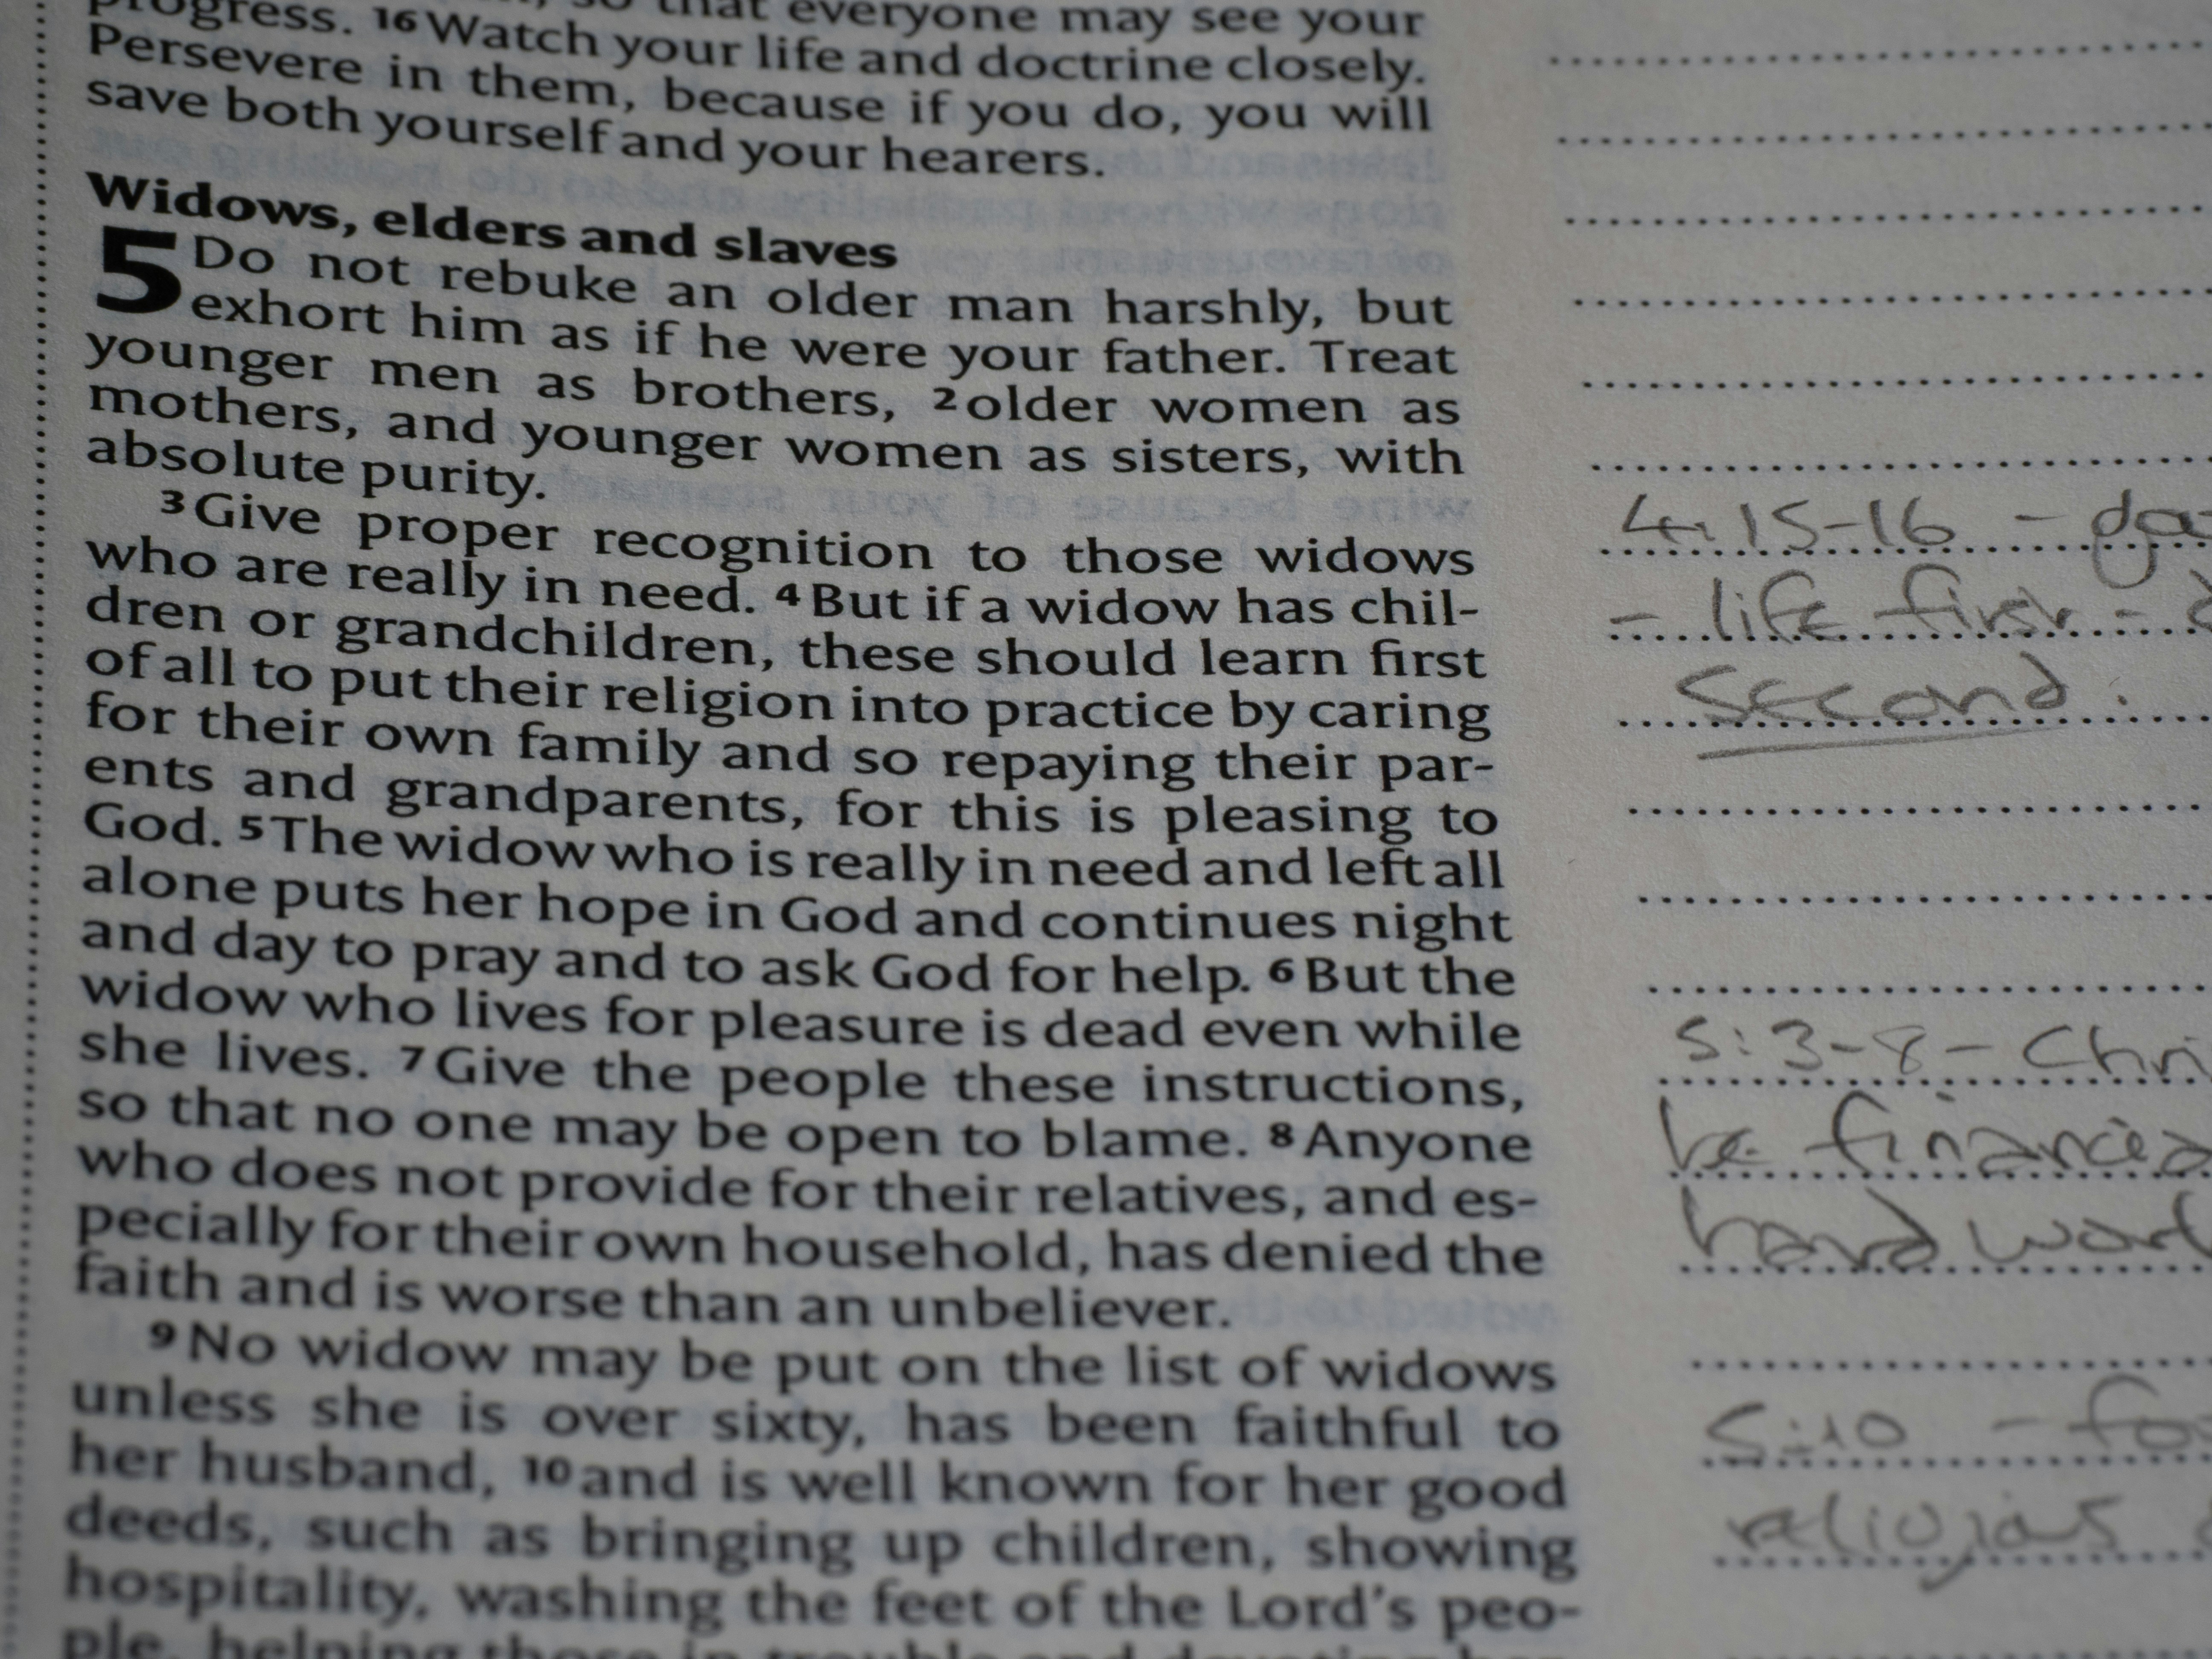 progress. 16 Watch your life and doctrine closely.
so that everyone may see your
Persevere in them, because if you do, you will
save both yourself and your hearers.
Widows, elders and slaves
5 Do not rebuke an older man harshly, but
exhort him as if he were your father. Treat
younger men as brothers, 2 older women as
mothers, and younger women as sisters, with
absolute purity.
3 Give proper recognition to those widows
who are really in need. 4 But if a widow has chil-
dren or grandchildren, these should learn first
of all to put their religion into practice by caring
for their own family and so repaying their par-
ents and grandparents, for this is pleasing to
God. 5 The widow who is really in need and left all
alone puts her hope in God and continues night
and day to pray and to ask God for help. 6 But the
widow who lives for pleasure is dead even while
she lives. 7 Give the people these instructions,
so that no one may be open to blame. 8 Anyone
who does not provide for their relatives, and es-
pecially for their own household, has denied the
faith and is worse than an unbeliever.
9 No widow may be put on the list of widows
unless she is over sixty, has been faithful to
her husband, 10 and is well known for her good
deeds, such as bringing up children, showing
hospitality, washing the feet of the Lord's peo-
ple, helping those in trouble and devoting her
4:15-16 -
- life first -
second.
5:3-8 - Chri
be financia
hard work
5:10 - fo
religious